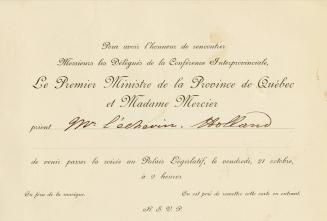 Pour avoir l'honneur de rencontrer
Messieurs les Délégués de la Conférence Interprovinciale,
Le Premier Ministre de la Province de Québec
et Madame Mercier
prient Mr l'échevin Holland
de venir passer la soirée au Palais Législatif, le vendredi, 21 octobre,
à 9 heures
Il y aura de la musique. On est prié de remettre cette carte en entrant.
R. S. V. P.